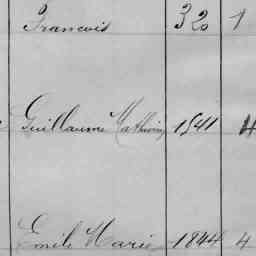 Francois 320 1
Guillaume Mathurin 1841 4
Emile Marie 1844 4